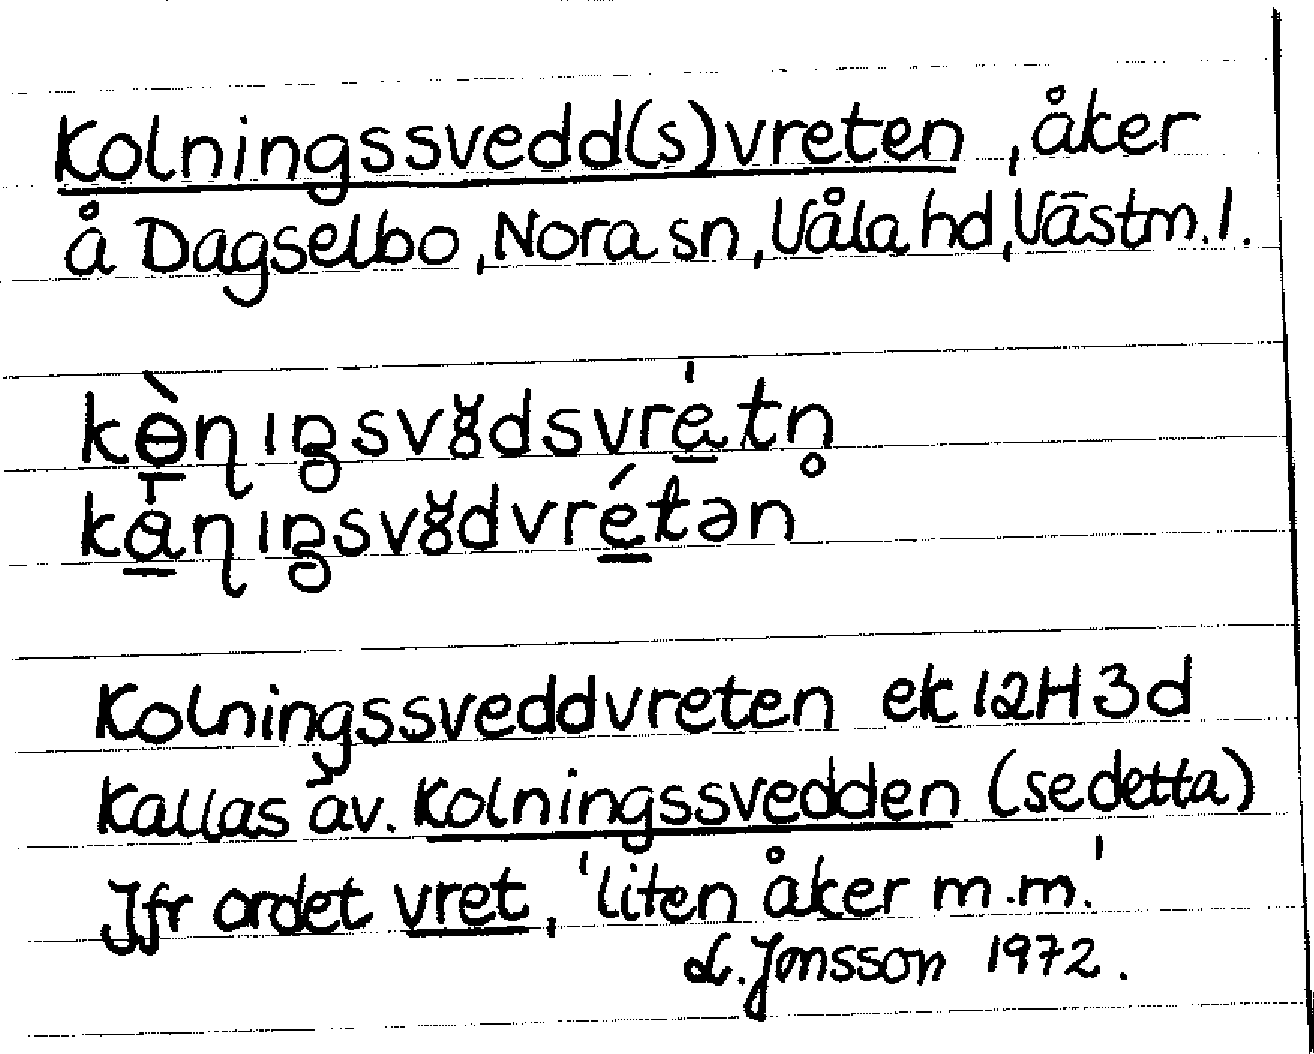 Kolningssvedd(s)vreten, åker
å Dagselbo, Nora sn, Våla hd, Västm. l.
kɵ̠̀ɳıŋsvɣ̆dsvrá̠tn̥
kà̠ɳıŋsvɣ̆dvré̠tən
Kolningssveddvreten ek 12H 3d
Kallas äv. Kolningssvedden (se detta)
Jfr ordet vret, 'liten åker m.m.'
L. Jonsson 1972.